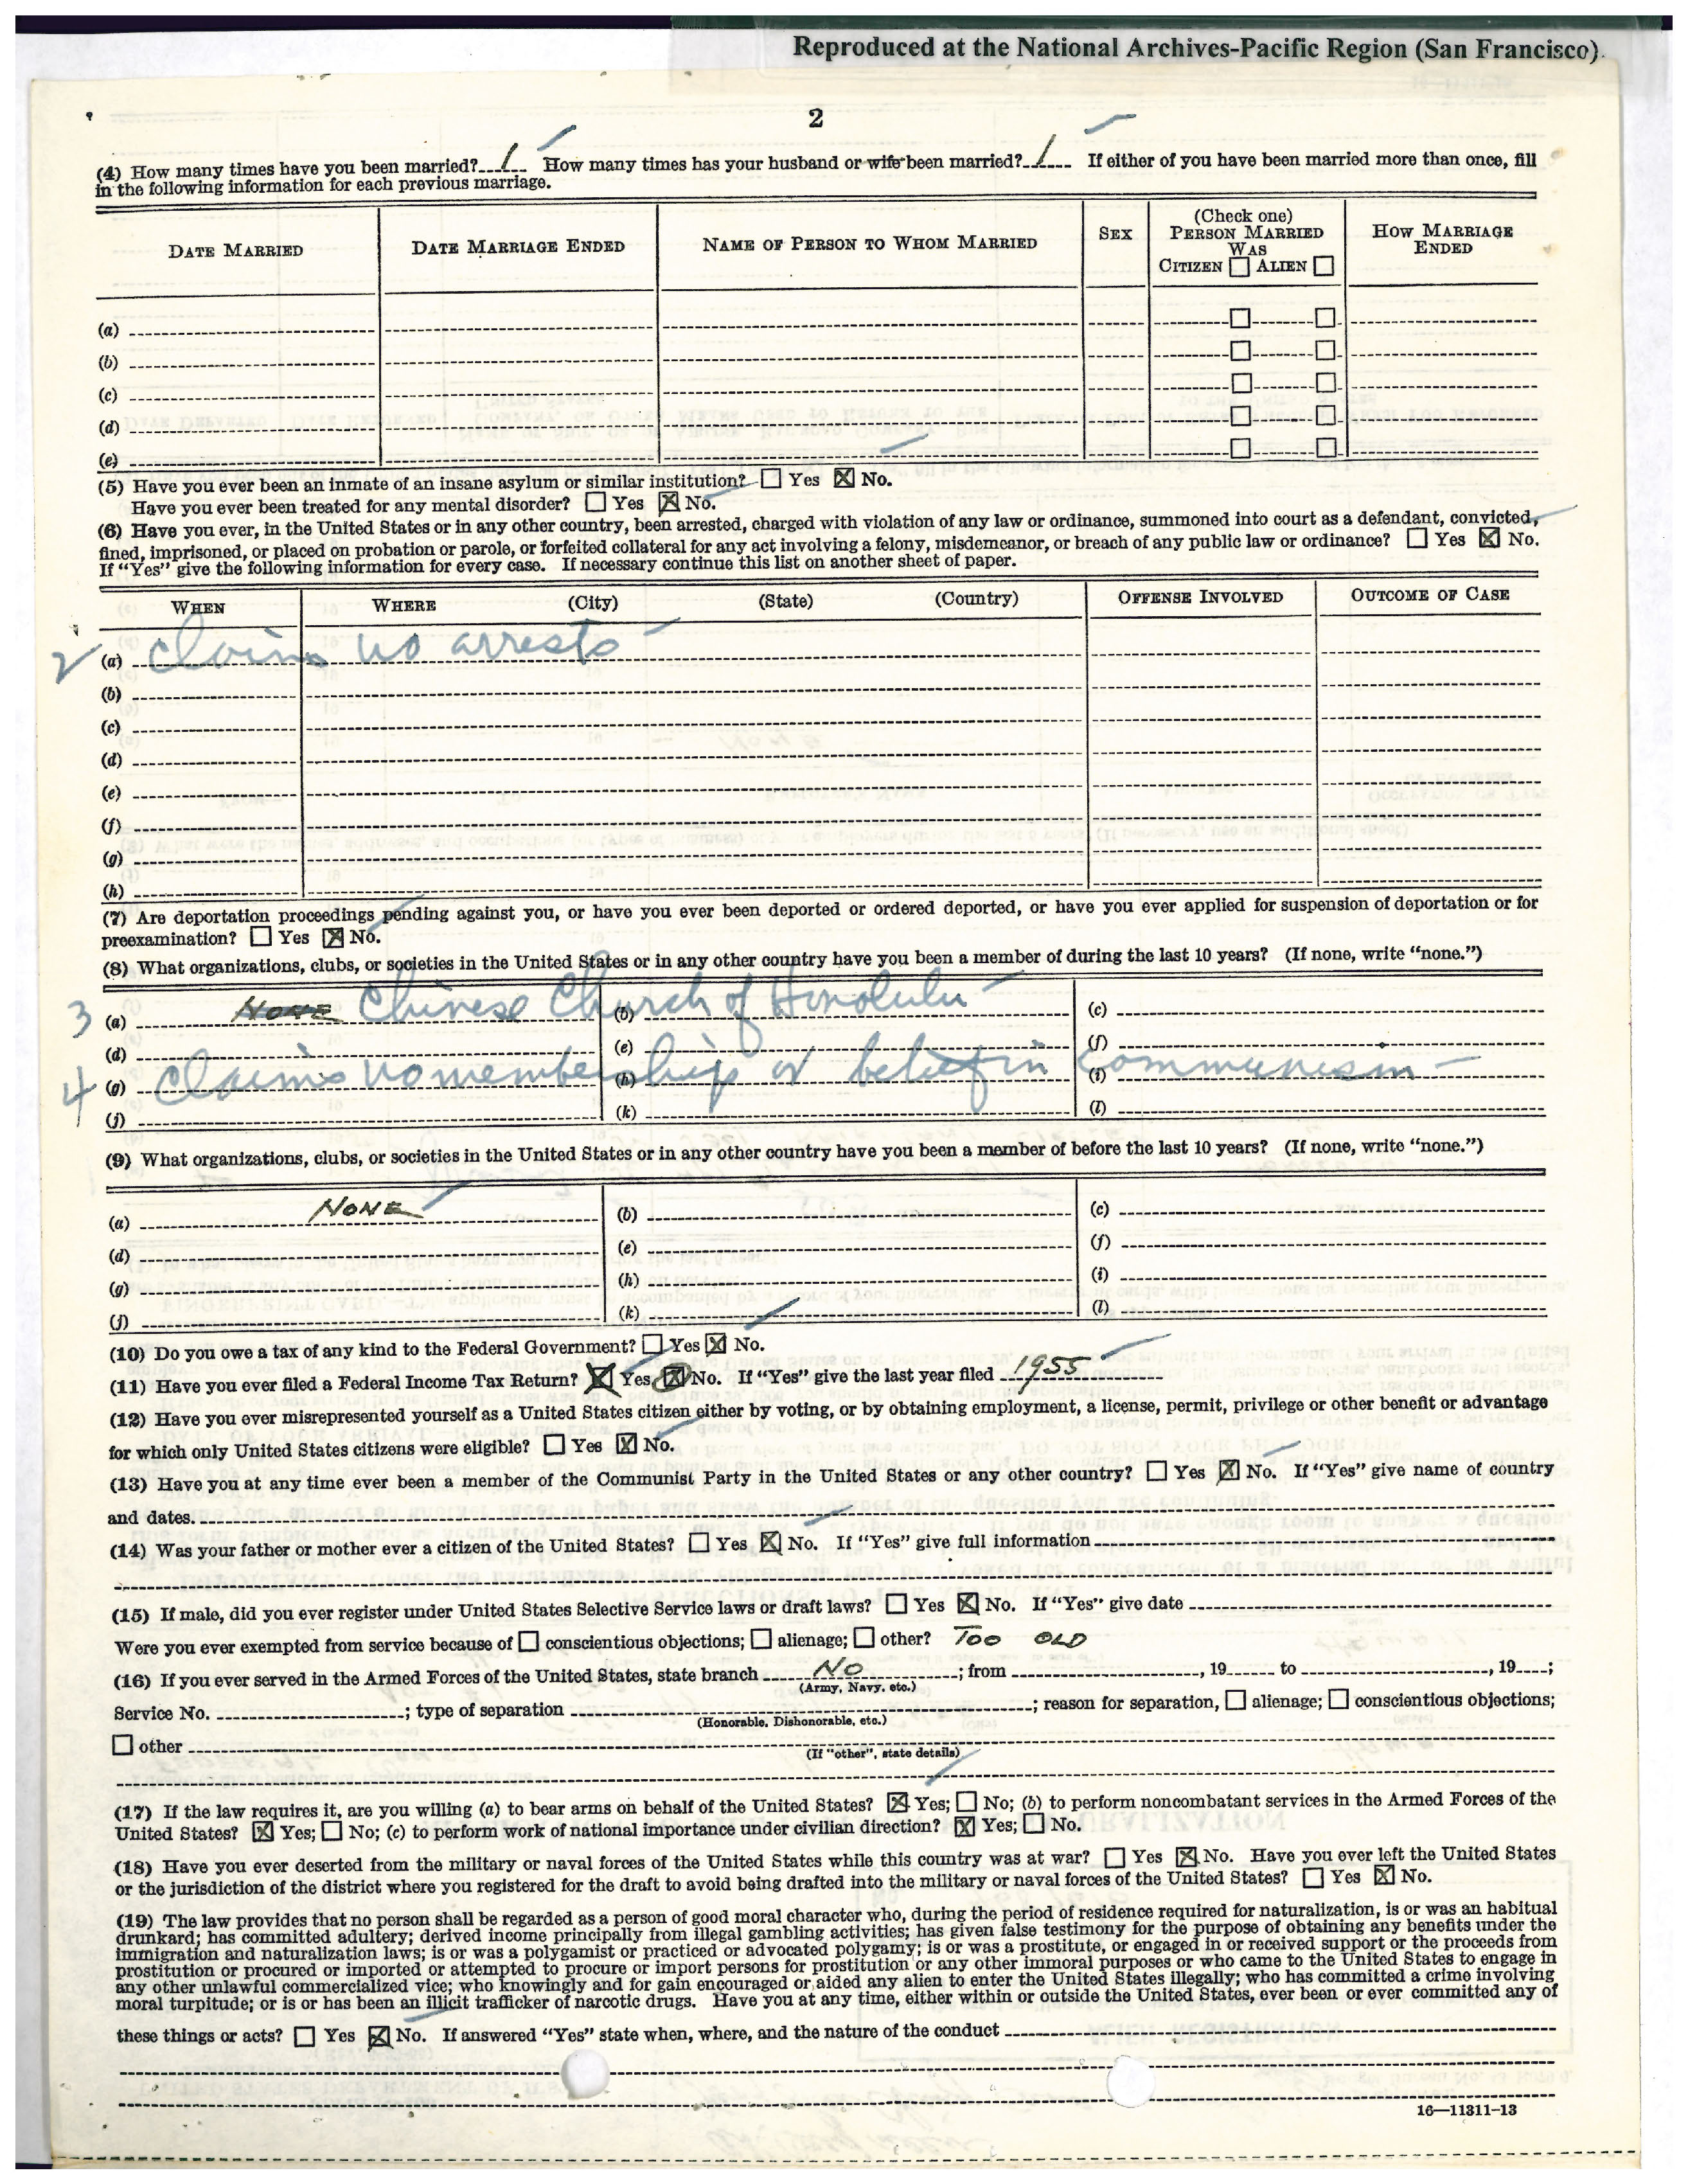 Reproduced at the National Archives-Pacific Region (San Francisco).
2
(4) How many times have you been married? 1 How many times has your husband or wife been married? 1 If either of you have been married more than once, fill
in the following information for each previous marriage.
DATE MARRIED DATE MARRIAGE ENDED NAME OF PERSON TO WHOM MARRIED SEX (Check one) PERSON MARRIED WAS CITIZEN ☐ ALIEN ☐ HOW MARRIAGE ENDED
(a) ☐ ☐
(b) ☐ ☐
(c) ☐ ☐
(d) ☐ ☐
(e) ☐ ☐
(5) Have you ever been an inmate of an insane asylum or similar institution? ☐ Yes ☒ No.
Have you ever been treated for any mental disorder? ☐ Yes ☒ No.
(6) Have you ever, in the United States or in any other country, been arrested, charged with violation of any law or ordinance, summoned into court as a defendant, convicted,
fined, imprisoned, or placed on probation or parole, or forfeited collateral for any act involving a felony, misdemeanor, or breach of any public law or ordinance? ☐ Yes ☒ No.
If "Yes" give the following information for every case. If necessary continue this list on another sheet of paper.
WHEN WHERE (City) (State) (Country) OFFENSE INVOLVED OUTCOME OF CASE
2 (a) Claims no arrests
(b)
(c)
(d)
(e)
(f)
(g)
(h)
(7) Are deportation proceedings pending against you, or have you ever been deported or ordered deported, or have you ever applied for suspension of deportation or for
preexamination? ☐ Yes ☒ No.
(8) What organizations, clubs, or societies in the United States or in any other country have you been a member of during the last 10 years? (If none, write "none.")
3 (a) NONE Chinese Church of Honolulu (b) (c)
(d) (e) (f)
4 (g) Claims no membership or belief in Communism (h) (i)
(j) (k) (l)
(9) What organizations, clubs, or societies in the United States or in any other country have you been a member of before the last 10 years? (If none, write "none.")
(a) NONE (b) (c)
(d) (e) (f)
(g) (h) (i)
(j) (k) (l)
(10) Do you owe a tax of any kind to the Federal Government? ☐ Yes ☒ No.
(11) Have you ever filed a Federal Income Tax Return? ☒ Yes ☒ No. If "Yes" give the last year filed 1955
(12) Have you ever misrepresented yourself as a United States citizen either by voting, or by obtaining employment, a license, permit, privilege or other benefit or advantage
for which only United States citizens were eligible? ☐ Yes ☒ No.
(13) Have you at any time ever been a member of the Communist Party in the United States or any other country? ☐ Yes ☒ No. If "Yes" give name of country
and dates.
(14) Was your father or mother ever a citizen of the United States? ☐ Yes ☒ No. If "Yes" give full information
(15) If male, did you ever register under United States Selective Service laws or draft laws? ☐ Yes ☒ No. If "Yes" give date
Were you ever exempted from service because of ☐ conscientious objections; ☐ alienage; ☐ other? TOO OLD
(16) If you ever served in the Armed Forces of the United States, state branch NO ; from , 19 to , 19 ;
(Army, Navy, etc.)
Service No. ; type of separation ; reason for separation, ☐ alienage; ☐ conscientious objections;
(Honorable, Dishonorable, etc.)
☐ other
(If "other", state details)
(17) If the law requires it, are you willing (a) to bear arms on behalf of the United States? ☒ Yes; ☐ No; (b) to perform noncombatant services in the Armed Forces of the
United States? ☒ Yes; ☐ No; (c) to perform work of national importance under civilian direction? ☒ Yes; ☐ No.
(18) Have you ever deserted from the military or naval forces of the United States while this country was at war? ☐ Yes ☒ No. Have you ever left the United States
or the jurisdiction of the district where you registered for the draft to avoid being drafted into the military or naval forces of the United States? ☐ Yes ☒ No.
(19) The law provides that no person shall be regarded as a person of good moral character who, during the period of residence required for naturalization, is or was an habitual
drunkard; has committed adultery; derived income principally from illegal gambling activities; has given false testimony for the purpose of obtaining any benefits under the
immigration and naturalization laws; is or was a polygamist or practiced or advocated polygamy; is or was a prostitute, or engaged in or received support or the proceeds from
prostitution or procured or imported or attempted to procure or import persons for prostitution or any other immoral purposes or who came to the United States to engage in
any other unlawful commercialized vice; who knowingly and for gain encouraged or aided any alien to enter the United States illegally; who has committed a crime involving
moral turpitude; or is or has been an illicit trafficker of narcotic drugs. Have you at any time, either within or outside the United States, ever been or ever committed any of
these things or acts? ☐ Yes ☒ No. If answered "Yes" state when, where, and the nature of the conduct
16—11311-13